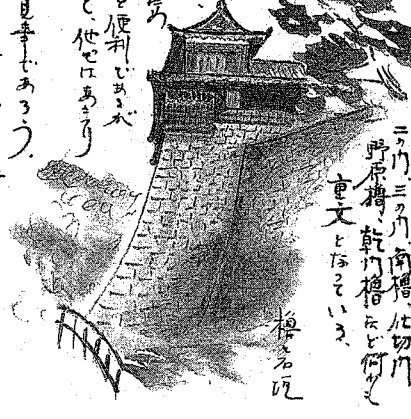 二ノ門、三ノ門、南櫓、仕切門
野原櫓、乾門櫓など何れも
重文となっている、
櫓と石垣
便利であるが
と、他ではあまり
見事であろう。